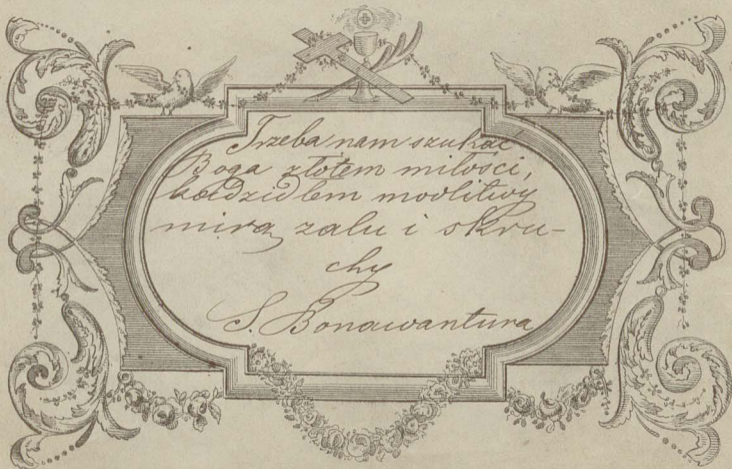 Trzeba nam szukać
Boga złotem miłości,
kadzidłem modlitwy
mirą zalu i skru-
chy
S. Bonawantura